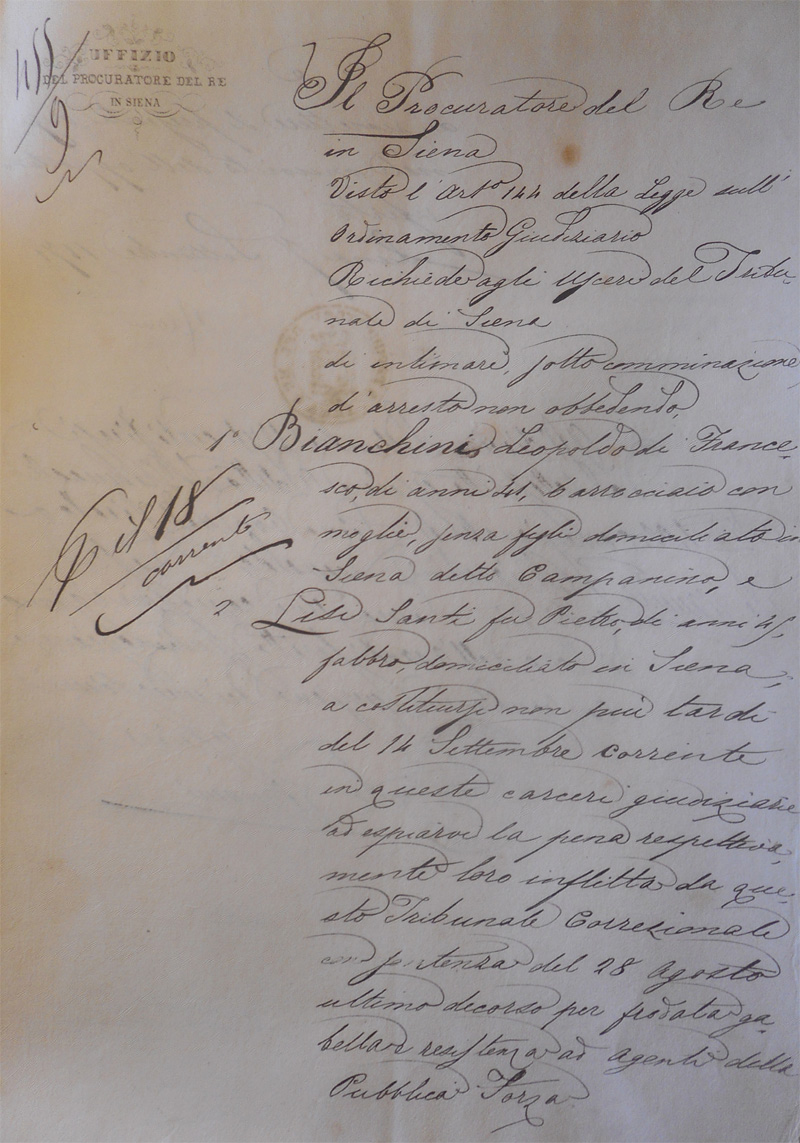 UFFIZIO
DEL PROCURATORE DEL RE
IN SIENA
Il Procuratore del Re
in Siena
Visto l'Arto 144 della Legge sull'
Ordinamento Giudiziario
Richiede agli Uscieri del Tribu-
nale di Siena
di intimare, sotto comminazione
d'arresto non obbedendo,
1° Bianchini Leopoldo di France-
sco, di anni 41, barrocciaio con
moglie, senza figli domiciliato in
Siena detto Campanino, e
2 Lisi Santi fu Pietro, di anni 45,
fabbro, domiciliato in Siena,
a costituirsi non più tardi
del 14 Settembre corrente
in queste carceri giudiziarie
ad espiarvi la pena respettiva-
mente loro inflitta da que-
sto Tribunale Correzionale
con sentenza del 28 Agosto
ultimo decorso per frodata ga-
bella e resistenza ad Agenti della
Pubblica Forza
il 18
corrente